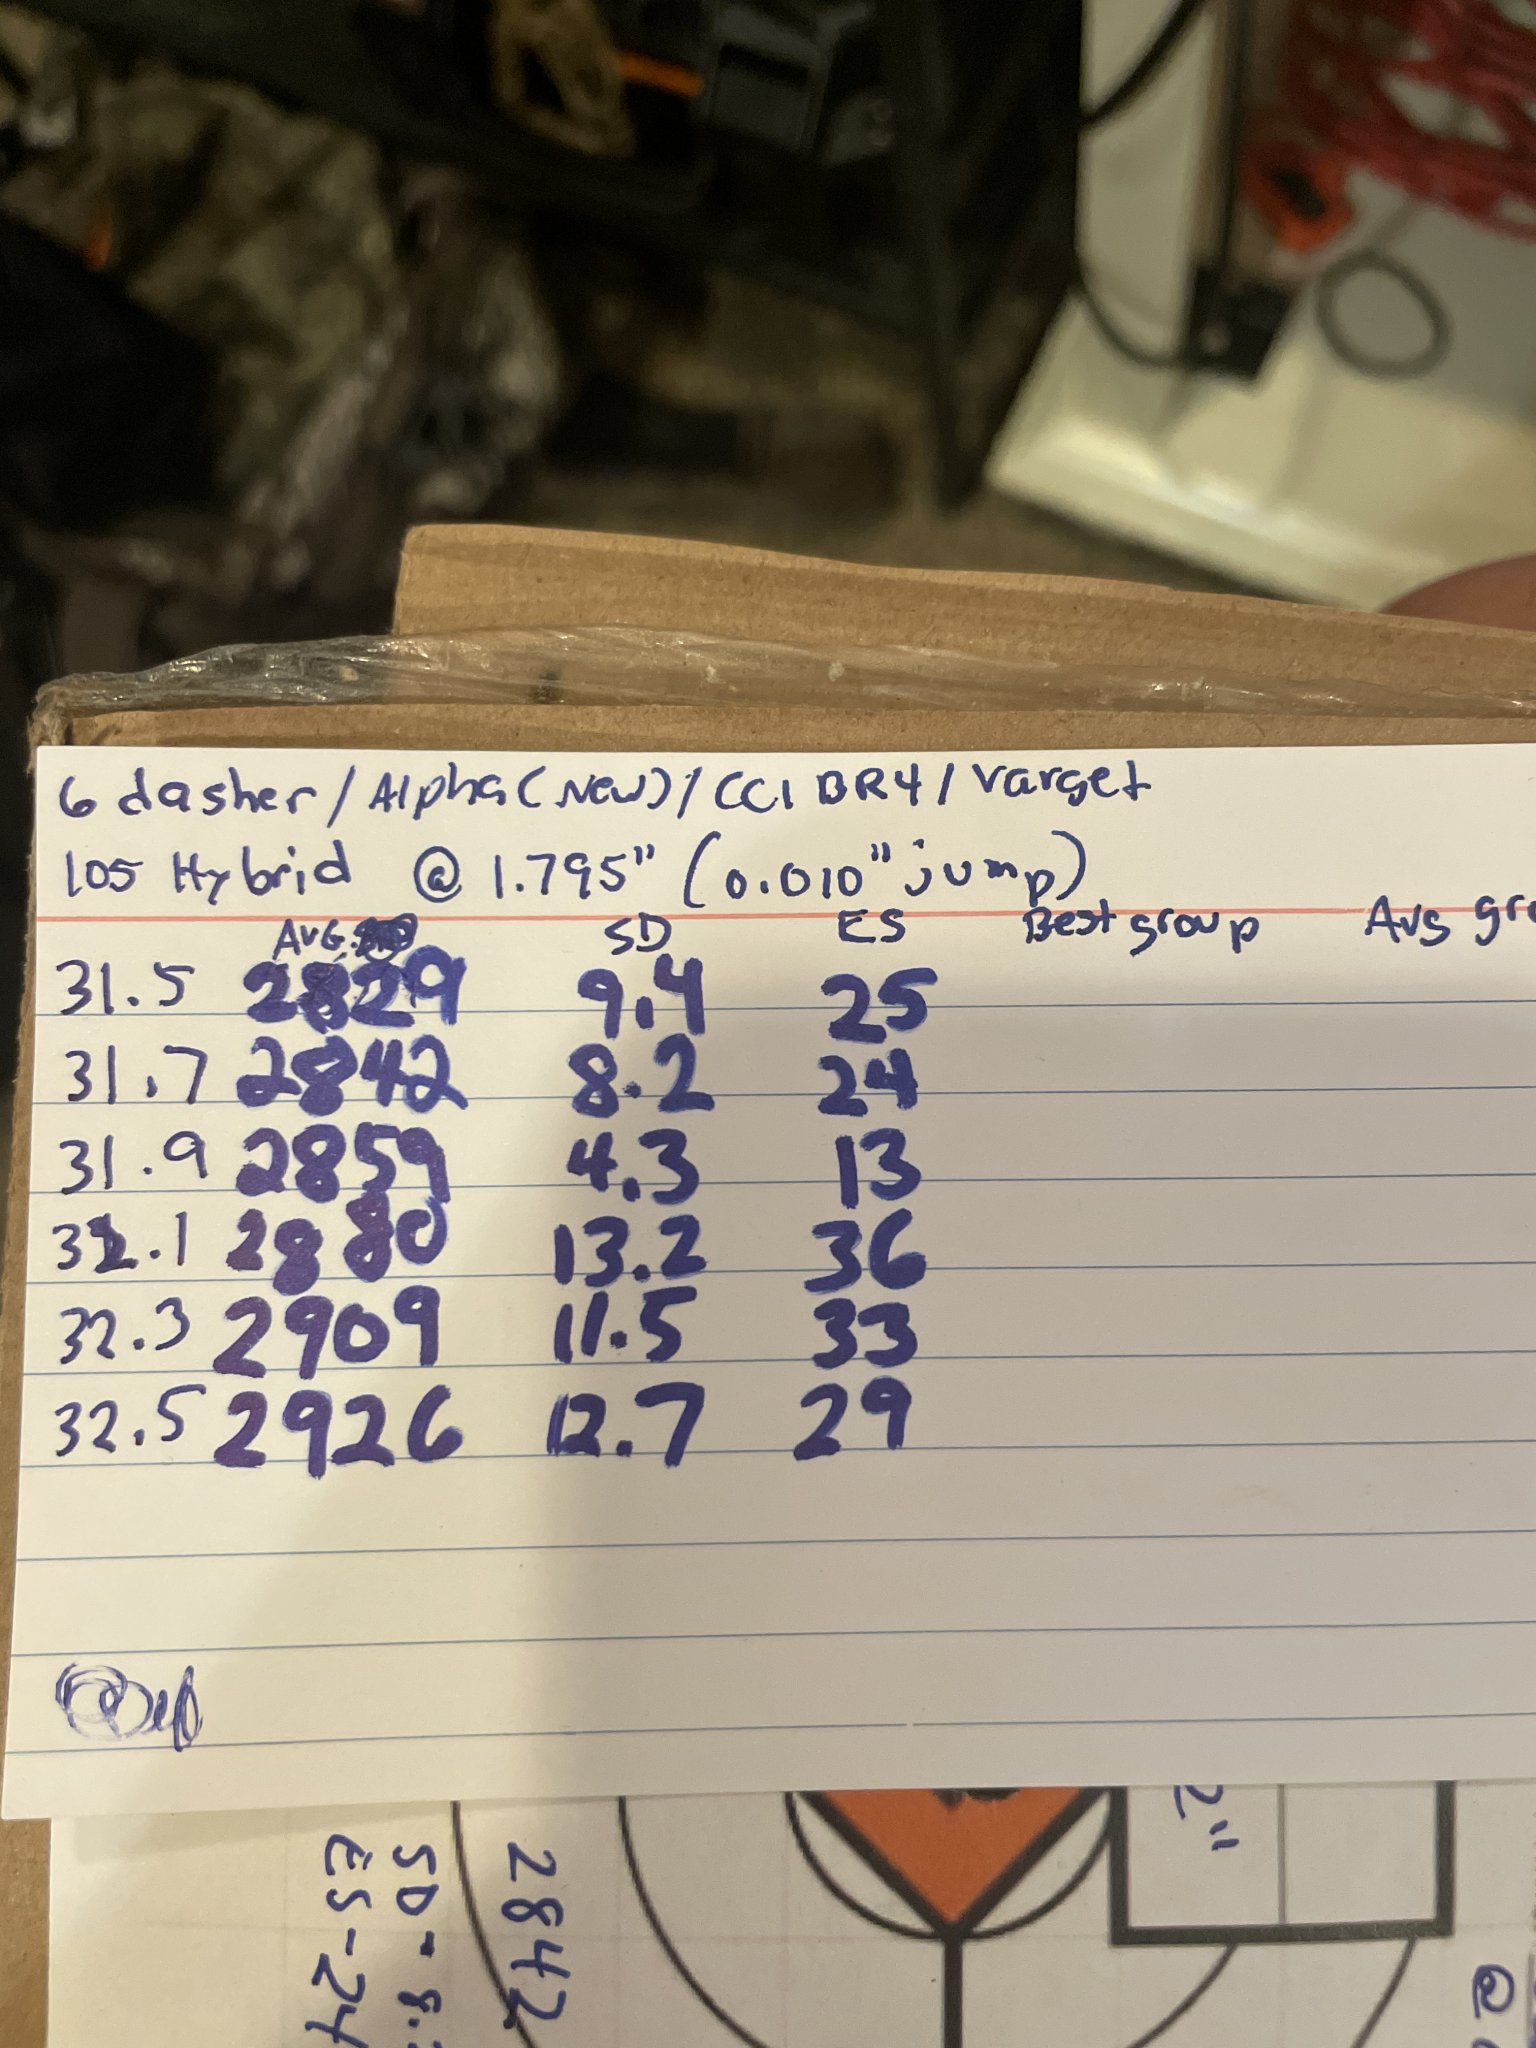 6 dasher / Alpha (New) / CCI BR4 / Varget
105 Hybrid @ 1.795" (0.010" jump)
AVG. SD ES Best group Avg
31.5 2829 9.4 25
31.7 2842 8.2 24
31.9 2859 4.3 13
32.1 2880 13.2 36
32.3 2909 11.5 33
32.5 2926 12.7 29
2842
SD-8.
ES-24
2"
@